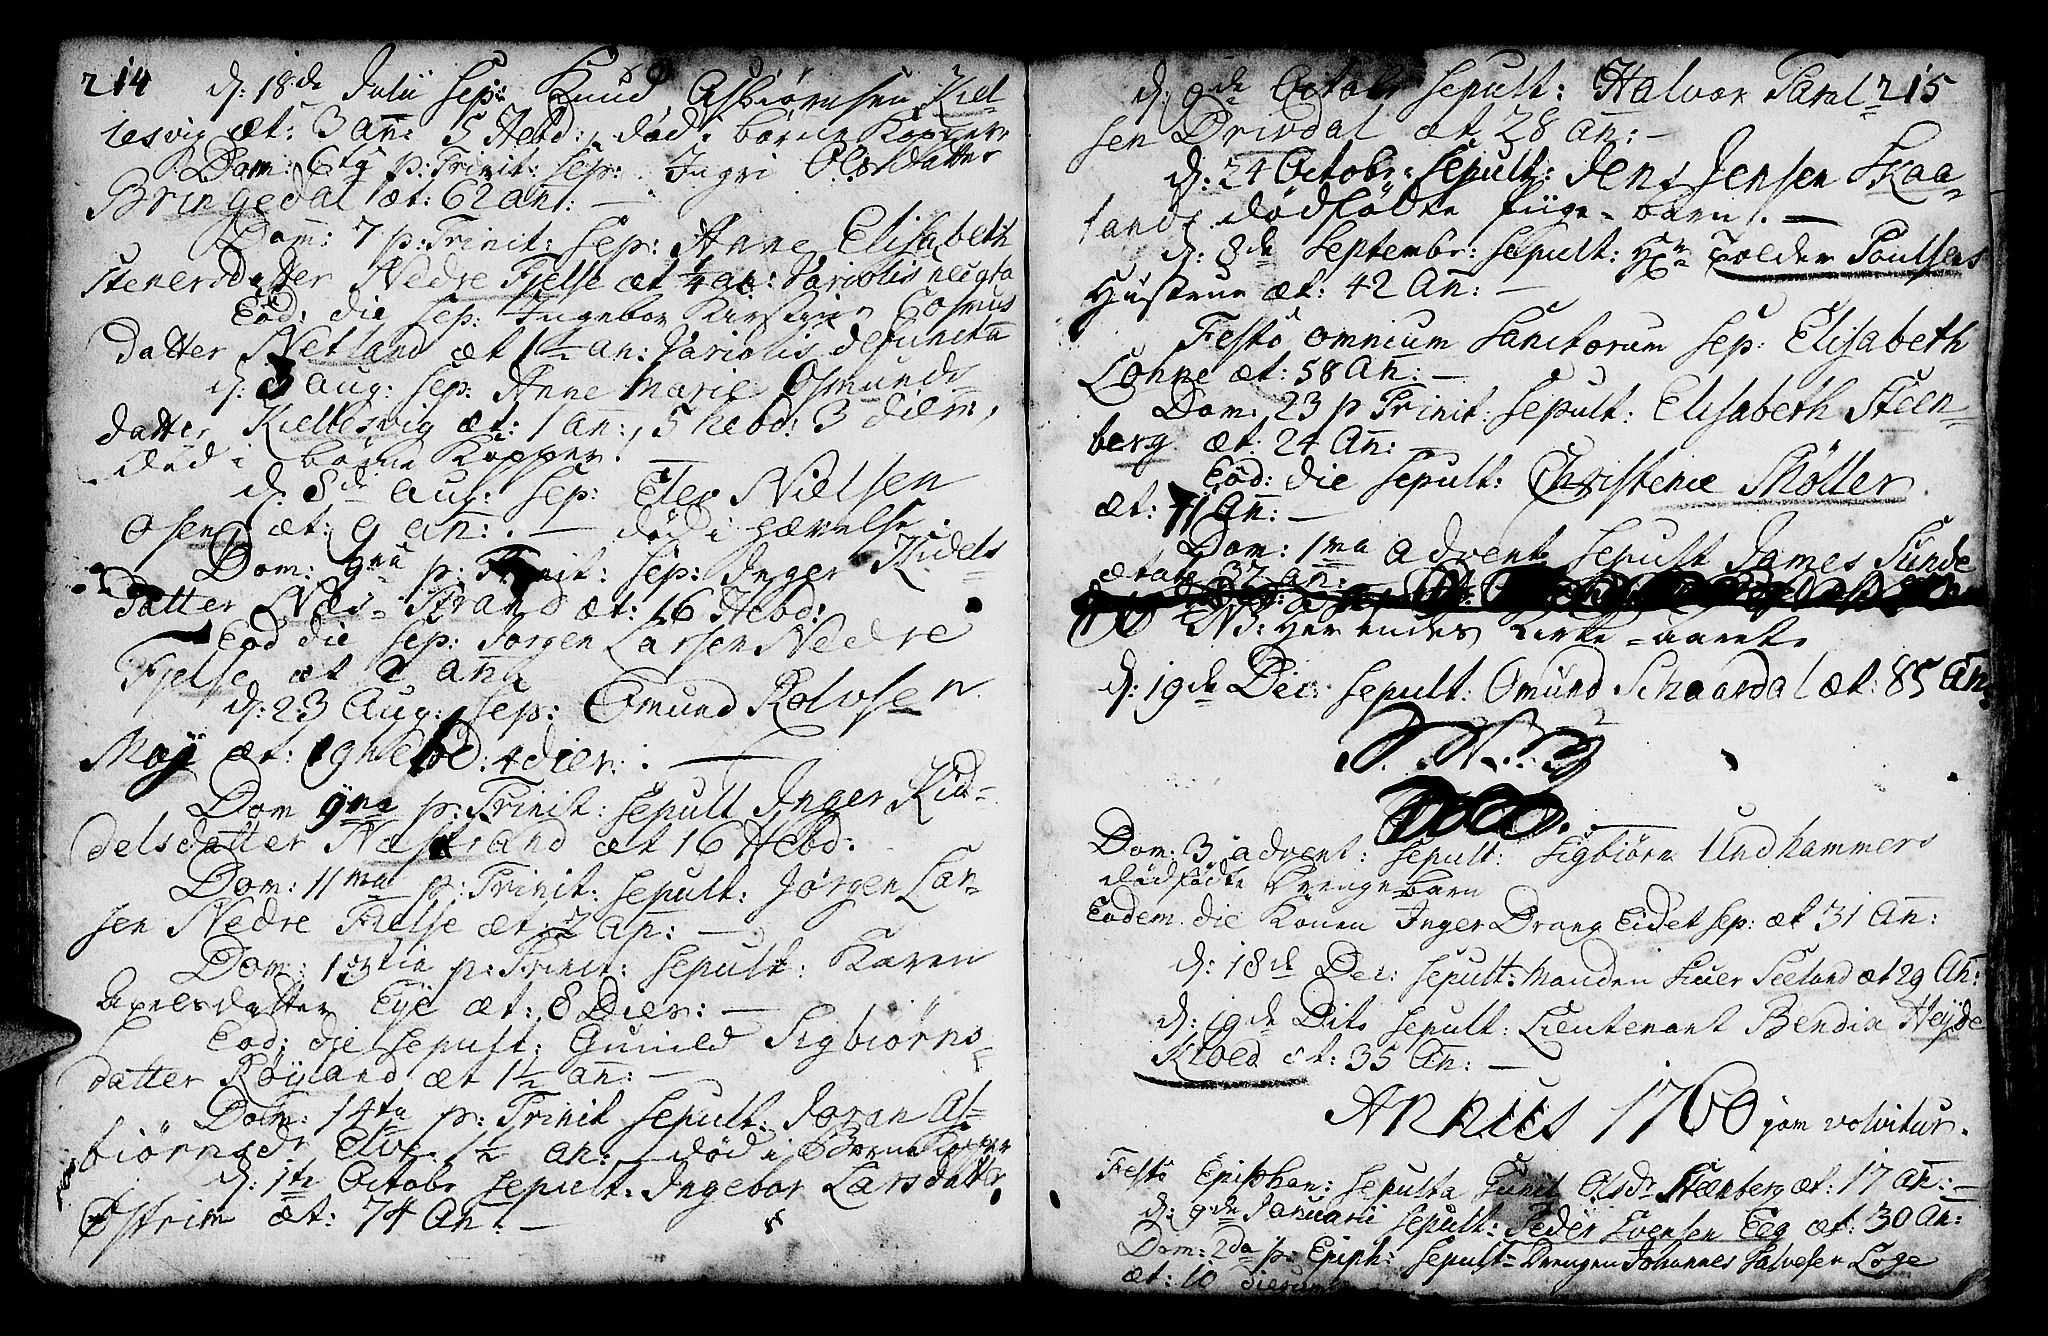 214
d: 18de Julii Sep: Knud Asbiørnsen Kiel-
lesvig æt: 3 an: 5 Hebd:, død i børne Kopper
Dom: 6tg p: Trinit: Sep: Ingri Olsdatter
Bringedal æt: 62 an: —
Dom: 7 p: Trinit: Sep: Anne Elisabeth
Stenersdatter Nedre Fjelse æt 1/4 an: Variolis
Eod: die Sep: Ingebor Kirstine Osmus
datter Netland æt 1 1/2 an: Variolis defuncta
d: 3 aug: Sep: Anne Marie Osmunds-
datter Kiellesvig æt: 1 an:, 5 hebd: 3 diem,
død i børne Kopper.
d: 8de Aug: Sep: Eler Nielsen
Osen æt: 9 an: . — død i hævelse.
Dom: 9na p: Trinit: Sep: Inger Kidels
datter Næs-Strand æt: 16 Hebd:
Eod die Sep: Jørgen Larsen Nedre
Fjelse æt 2 an
d: 23 Aug: Sep: Omund Rolvsen
Møy æt: 19 Hebd: 4 dier: . —
Dom 9na p: Trinit: Sepult Inger Kid-
delsdatter Nastrand æt 16 Hebd:
Dom: 11ma p: Trinit: Sepult: Jørgen Lar-
sen Nedre Fielse æt 2 an: —
Dom: 13tia p: Trinit: Sepult: Karen
Axelsdatter Eye æt: 8 Dier: —
Eod: die Sepult: Gunild Sigbiørns-
datter Røyland æt 1 1/2 an: —
Dom: 14ta p: Trinit Sepult: Joran As-
biørnsdr Elve 1 1/2 an: død i Børne Kopper
d: 1te Octobr Sepult: Ingebor Larsdatter
Østrim æt: 74 An: —
215
d: 9de Octobr Sepult: Halvor Paral-
sen Drivdal æt 28 an: —
d: 24 Octobr: Sepult: Jens Jensen Skaa-
lands dødfødte pige-barn. —
d: 8de Septembr: Sepult: Hr Tolder Poulsens
Hustrue æt: 42 An: —
Festo omnium Sanctorum Sep: Elisabeth
Lohne æt: 58 An: —
Dom: 23 p Trinit: Sepult: Elisabeth Steen-
berg æt: 24 An:
Eod: die Sepult: Christence Møller
æt: 71 An: —
Dom: 1ma Advent Sepult James Sunde
ætate 37 an: —
NB: Her endes Kirke-aaret.
d: 19de Dec: Sepult: Omund Schaardal æt: 85 An:
Dom: 3 advent: Sepult: Sigbiørn Undhammers
dødfødte Drengebarn
Eodem die Konen Inger Drang Eidet Sep: æt 31 An:
d: 18de Dec: Sepult: Manden Siver Seeland æt 29 An:
d: 19de Dito Sepult: Lieutenant Bendix Heyde
Kloed æt: 35 An: —
Annus 1760 jam volvitur.
Festo Epiphan: Sepulta Gunil Olsdr Steenberg æt: 17 An: —
d: 9de Januarii Sepult: Peder Evensen Eeg æt: 30 An:
Dom: 2da p: Epiph: Sepult Drengen Johannes Salvesen Løge
æt: 10 dierum